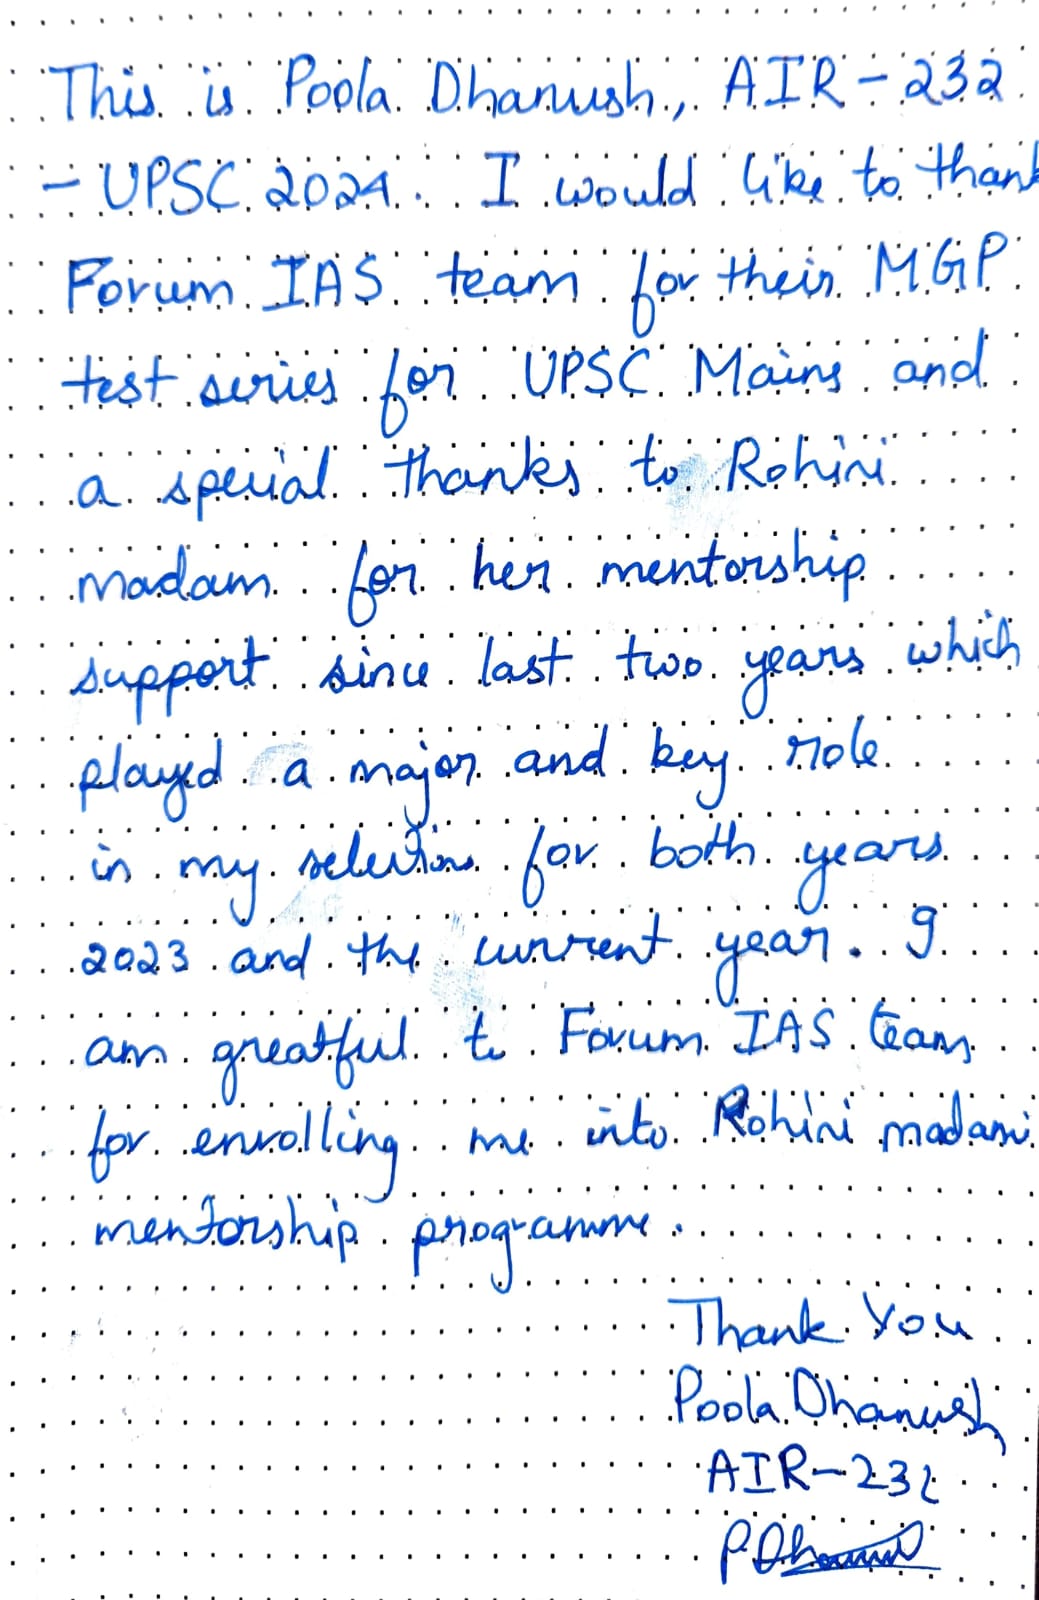 This is Poola Dhanush, AIR - 232
- UPSC 2024. I would like to thank
Forum IAS team for their MGP
test series for UPSC Mains and
a special thanks to Rohini
madam for her mentorship
support since last two years which
played a major and key role
in my selections for both years
2023 and the current year. I
am greatful to Forum IAS team
for enrolling me into Rohini madam
mentorship programme.
Thank You
Poola Dhanush
AIR-232
P Dhanush